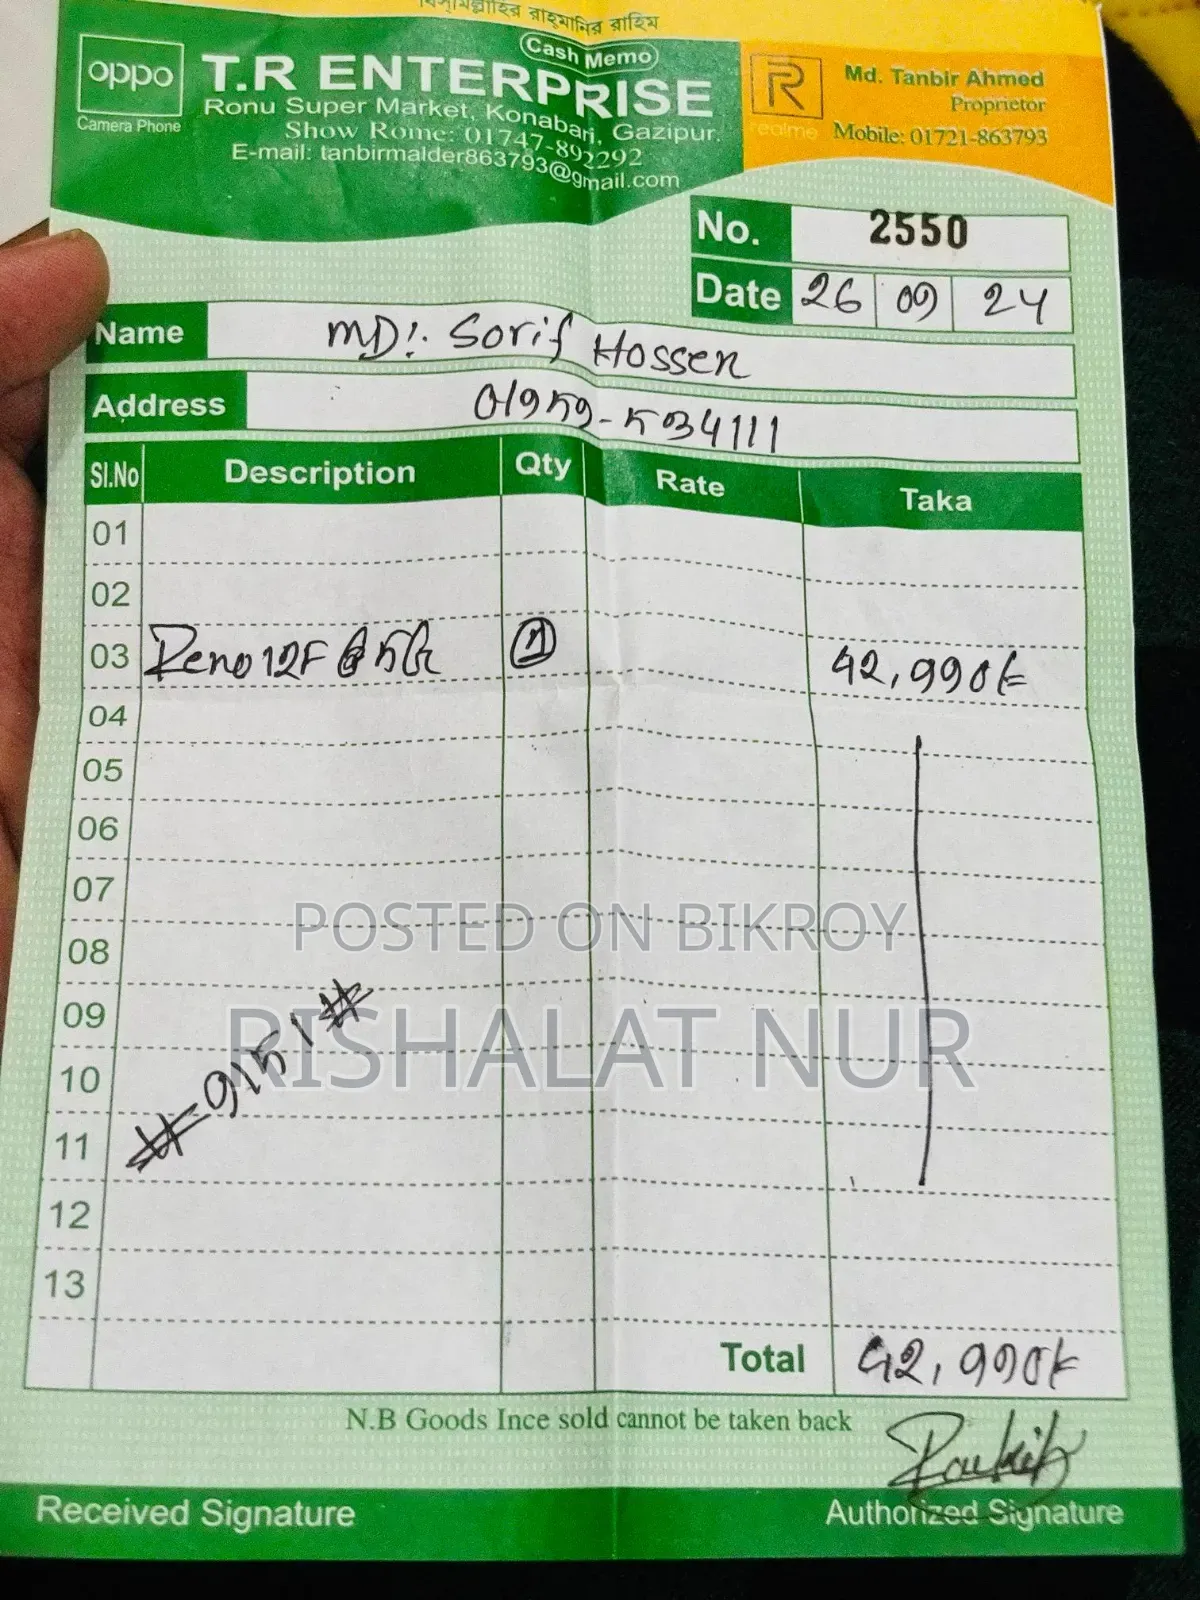 বিসমিল্লাহির রাহমানির রাহিম
Cash Memo
oppo
Camera Phone
T.R ENTERPRISE
Ronu Super Market, Konabari, Gazipur.
Show Rome: 01747-892292
E-mail: tanbirmalder863793@gmail.com
realme
Md. Tanbir Ahmed
Proprietor
Mobile: 01721-863793
No. 2550
Date 26 09 24
Name MD!. Sorif Hossen
Address 01959-534111
Sl.No Description Qty Rate Taka
01
02
03 Reno 12F 5G 1 42,990/=
04
05
06
07
08
09
10
11
12
13
#=9151#
POSTED ON BIKROY
RISHALAT NUR
Total 42,990/=
N.B Goods Ince sold cannot be taken back
Received Signature
Authorized Signature